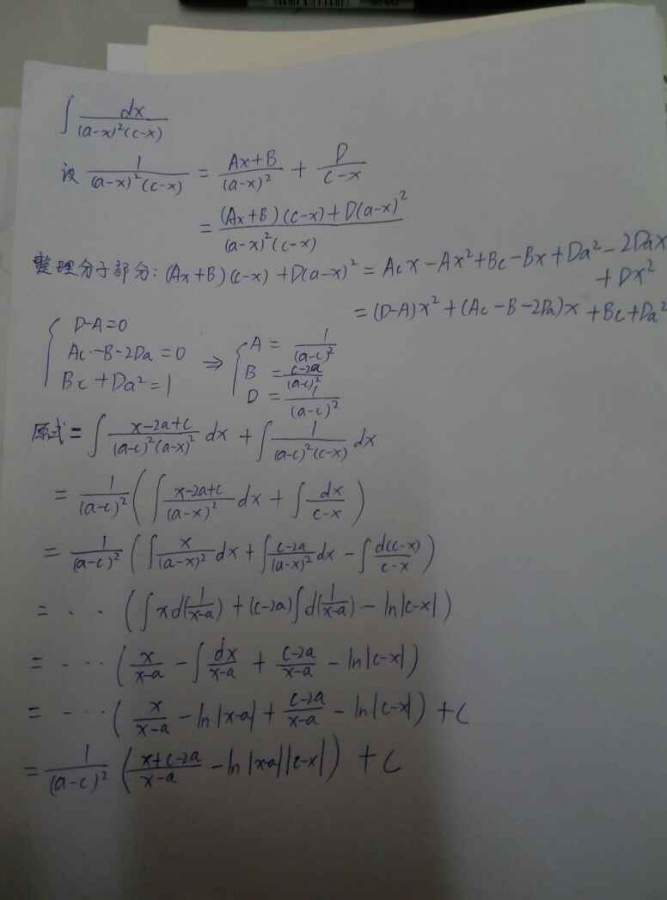 ∫ dx/((a-x)²(c-x))
设 1/((a-x)²(c-x)) = (Ax+B)/(a-x)² + D/(c-x)
= ((Ax+B)(c-x)+D(a-x)²)/((a-x)²(c-x))
整理分子部分: (Ax+B)(c-x)+D(a-x)² = Acx-Ax²+Bc-Bx+Da²-2Dax
+Dx²
= (D-A)x²+(Ac-B-2Da)x+Bc+Da²
{ D-A=0 ⇒ { A = 1/(a-c)²
Ac-B-2Da=0 B = (c-2a)/(a-c)²
Bc+Da²=1 D = 1/(a-c)²
原式= ∫ (x-2a+c)/((a-c)²(a-x)²) dx + ∫ 1/((a-c)²(c-x)) dx
= 1/(a-c)² (∫ (x-2a+c)/(a-x)² dx + ∫ dx/(c-x))
= 1/(a-c)² (∫ x/(a-x)² dx + ∫ (c-2a)/(a-x)² dx - ∫ d(c-x)/(c-x))
= ·· ·· (∫ x d(1/(x-a)) + (c-2a)∫ d(1/(x-a)) - ln|c-x|)
= ·· ·· (x/(x-a) - ∫ dx/(x-a) + (c-2a)/(x-a) - ln|c-x|)
= ·· ·· (x/(x-a) - ln|x-a| + (c-2a)/(x-a) - ln|c-x|) + C
= 1/(a-c)² ((x+c-2a)/(x-a) - ln|x-a||c-x|) + C